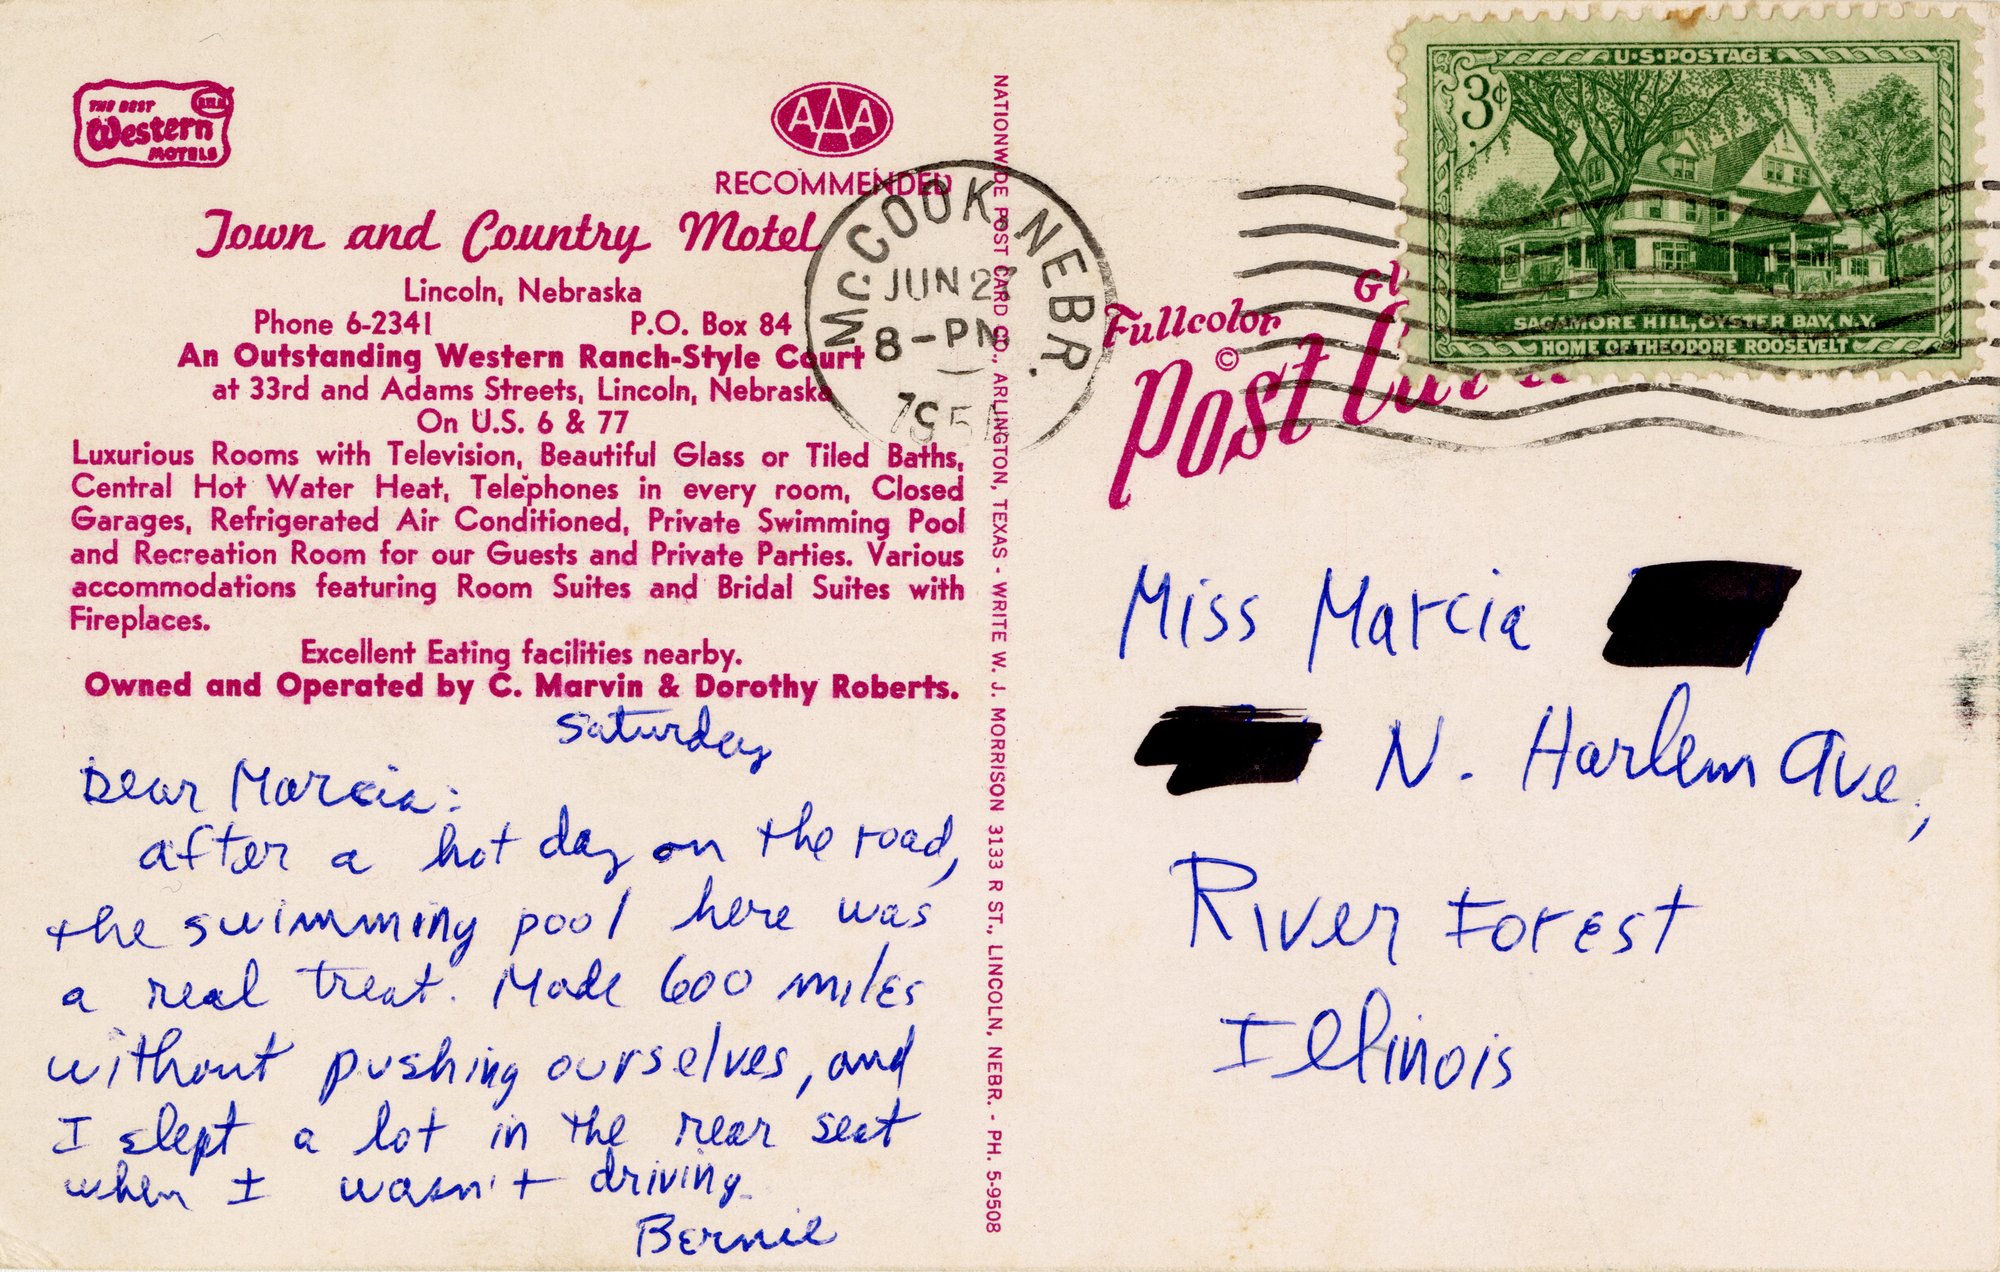 THE BEST
Western
MOTELS
AAA
RECOMMENDED
Town and Country Motel
Lincoln, Nebraska
Phone 6-2341 P.O. Box 84
An Outstanding Western Ranch-Style Court
at 33rd and Adams Streets, Lincoln, Nebraska
On U.S. 6 & 77
Luxurious Rooms with Television, Beautiful Glass or Tiled Baths,
Central Hot Water Heat, Telephones in every room, Closed
Garages, Refrigerated Air Conditioned, Private Swimming Pool
and Recreation Room for our Guests and Private Parties. Various
accommodations featuring Room Suites and Bridal Suites with
Fireplaces.
Excellent Eating facilities nearby.
Owned and Operated by C. Marvin & Dorothy Roberts.
Saturday
Dear Marcia:
after a hot day on the road,
the swimming pool here was
a real treat. Made 600 miles
without pushing ourselves, and
I slept a lot in the rear seat
when I wasn't driving.
Bernie
NATIONWIDE POST CARD CO., ARLINGTON, TEXAS - WRITE W. J. MORRISON 3133 R ST., LINCOLN, NEBR. - PH. 5-9508
MC COOK, NEBR.
JUN 27
8-PM
U·S·POSTAGE
3¢
SAGAMORE HILL, OYSTER BAY, N.Y.
HOME OF THEODORE ROOSEVELT
Fullcolor
©
Post
Miss Marcia
N. Harlem Ave,
River Forest
Illinois